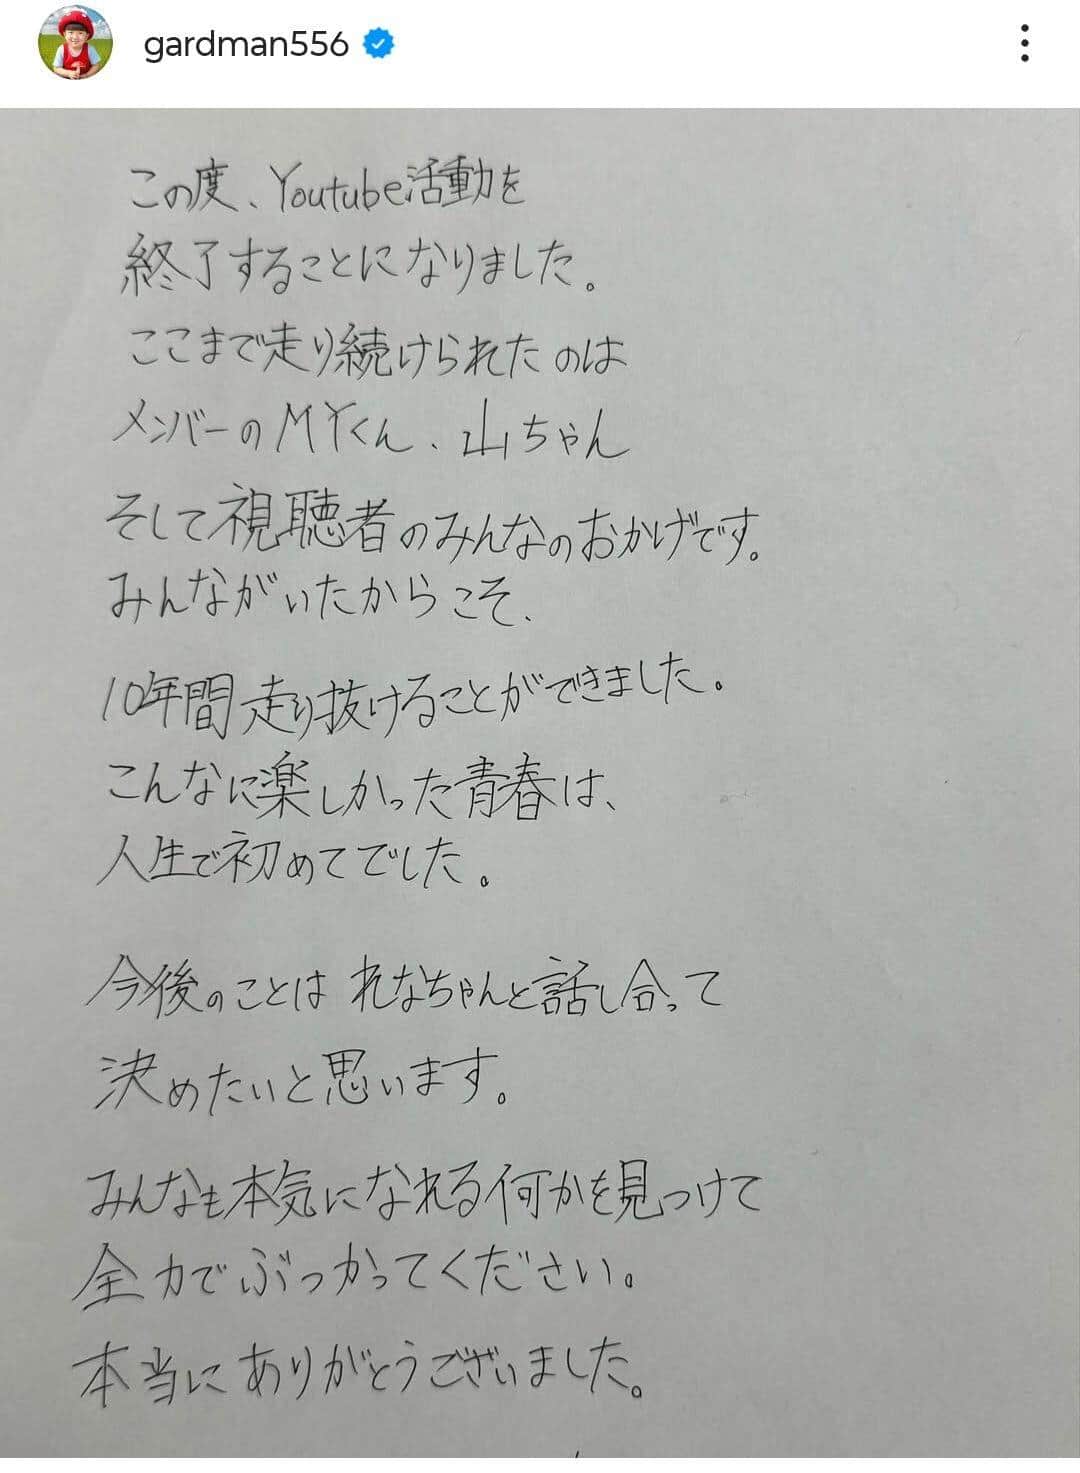 gardman556
この度、Youtube活動を
終了することになりました。
ここまで走り続けられたのは
メンバーのMYくん、山ちゃん
そして視聴者のみんなのおかげです。
みんながいたからこそ、
10年間走り抜けることができました。
こんなに楽しかった青春は、
人生で初めてでした。
今後のことは れなちゃんと話し合って
決めたいと思います。
みんなも本気になれる何かを見つけて
全力でぶつかってください。
本当にありがとうございました。